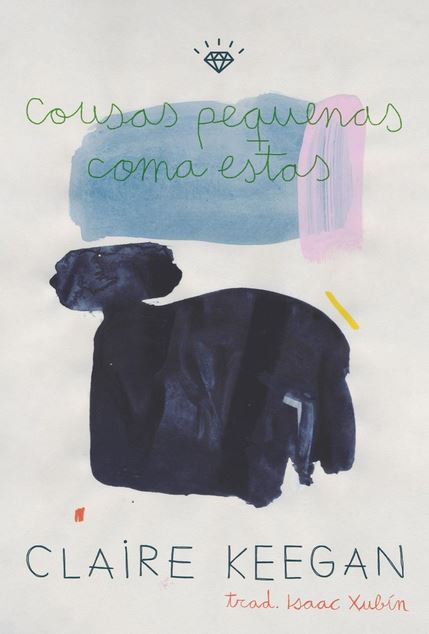 cousas pequenas
coma estas
CLAIRE KEEGAN
trad. Isaac Xubín